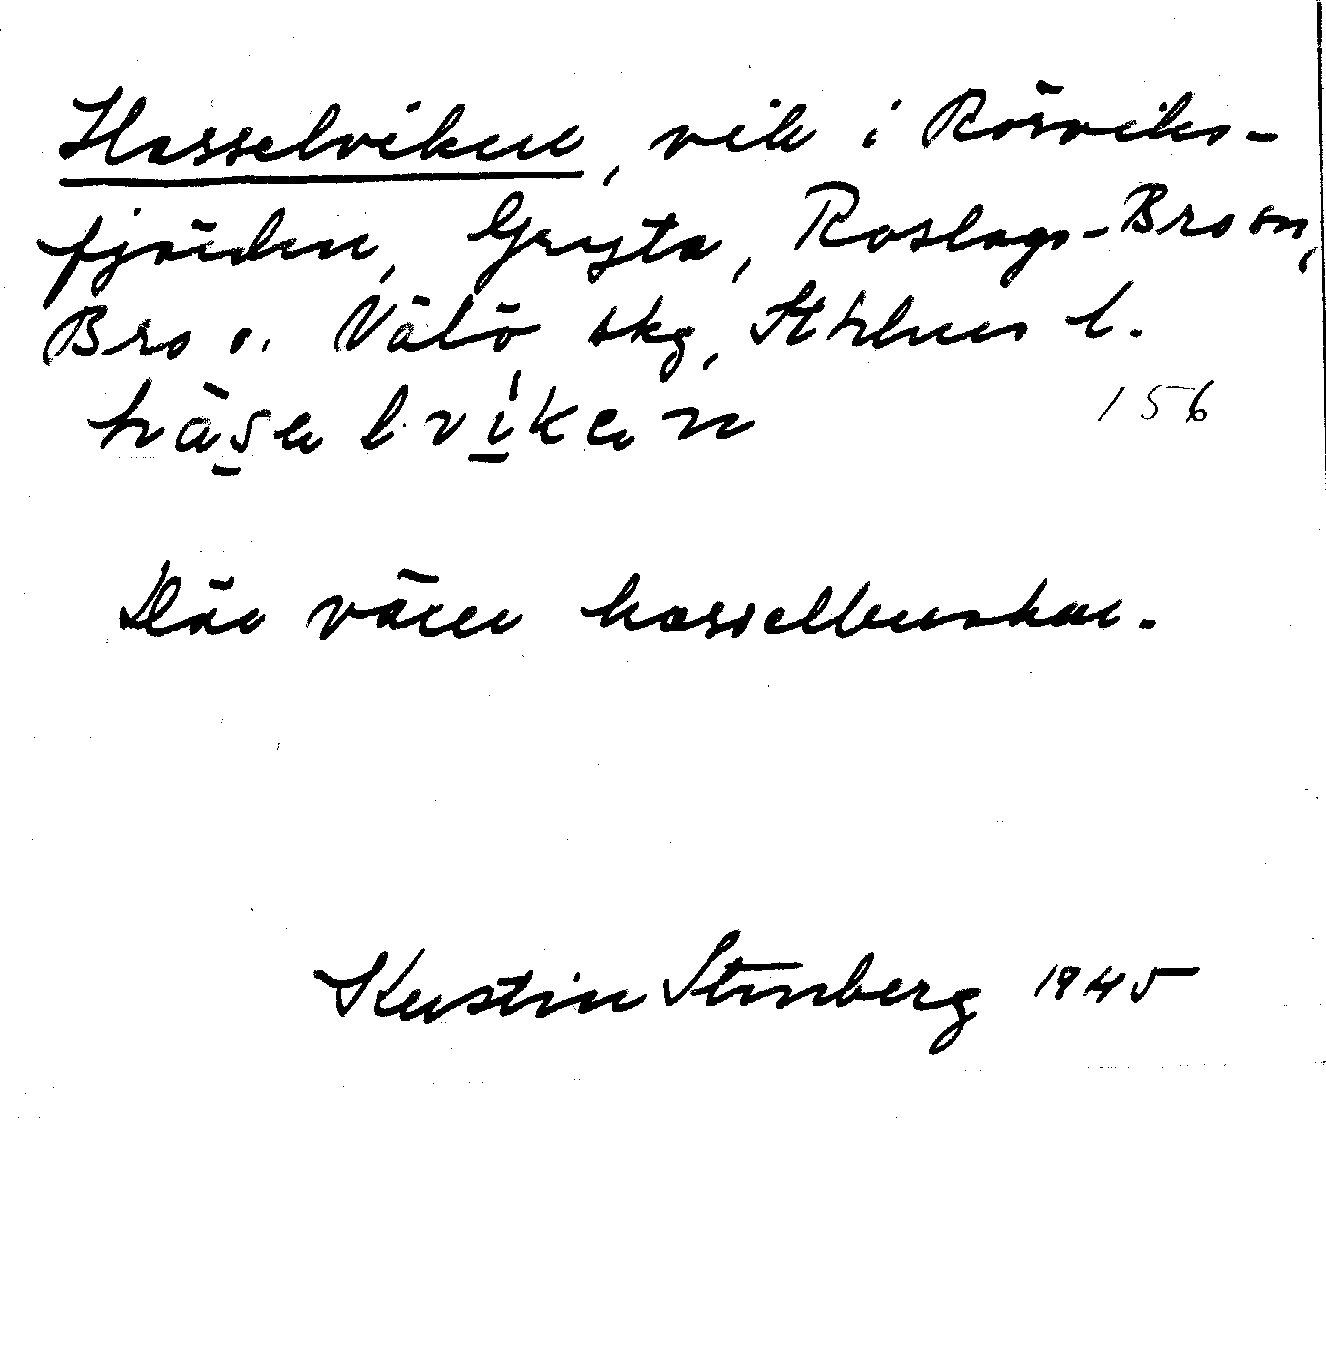 Hasselviken, vik i Rörviks-
fjärden, Gryta, Roslags-Bro sn,
Bro o. Vätö skg, Sthlms l.
häselviken 156
Där växer hasselbuskar.
Kerstin Stenberg 1945